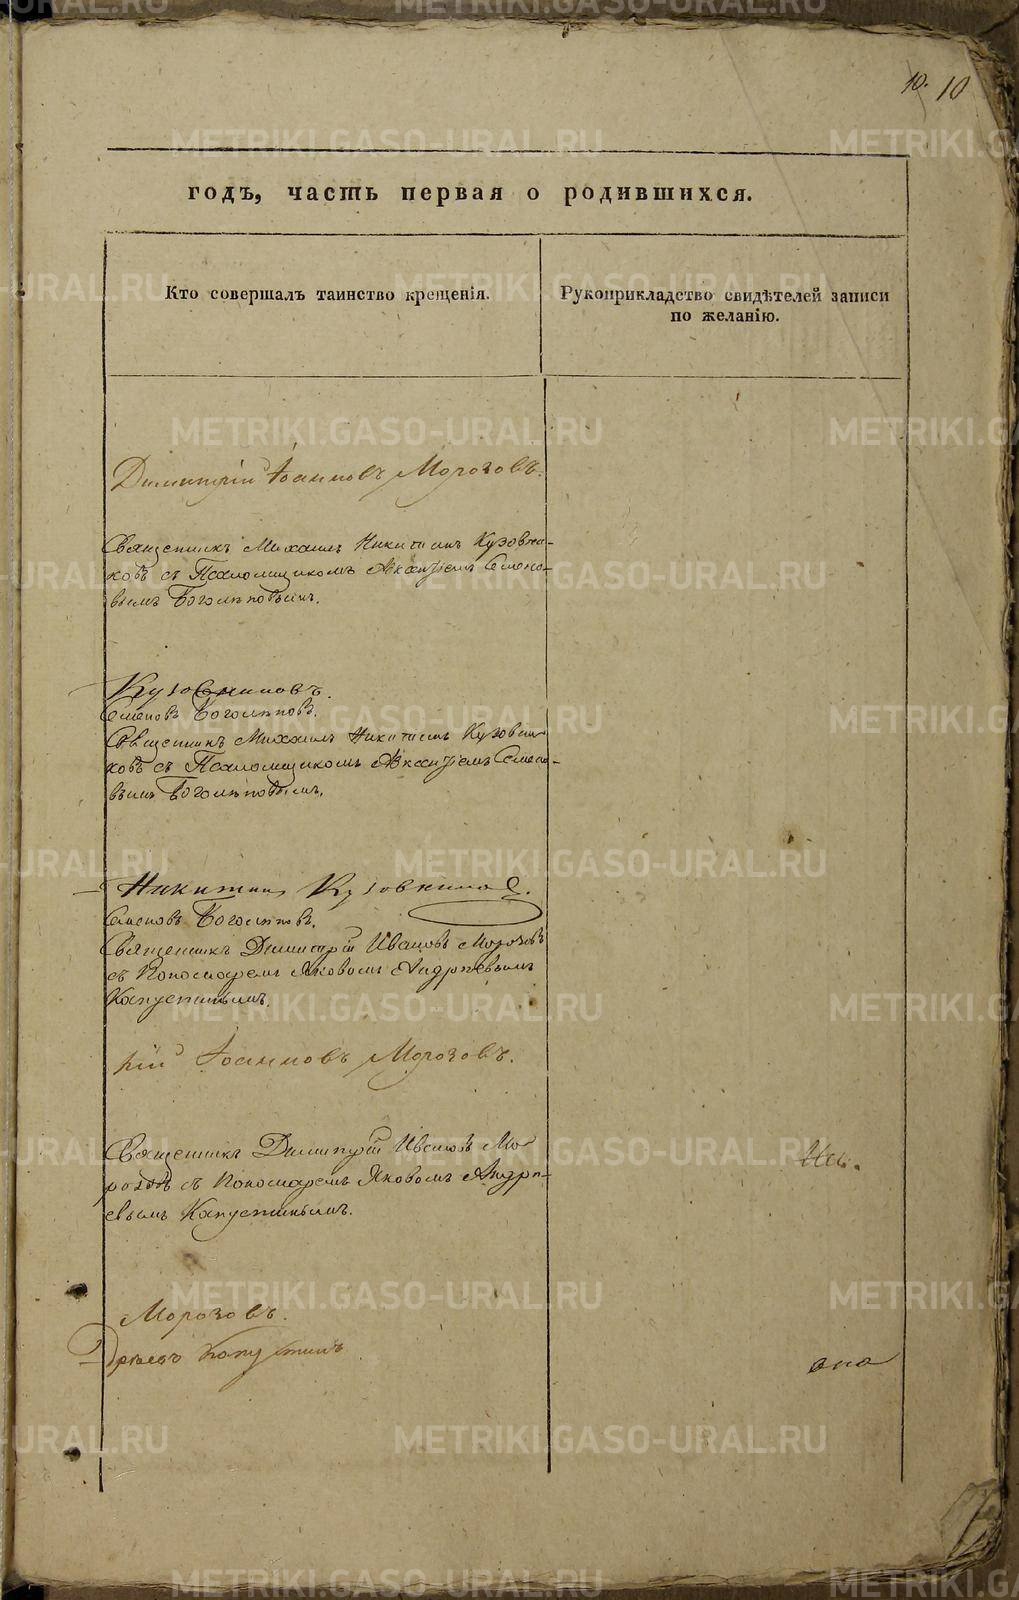 10. 10
годъ, часть первая о родившихся.
Кто совершалъ таинство крещенія.
Рукоприкладство свидѣтелей записи
по желанію.
Димитрій Іоанновъ Морозовъ.
Священникъ Михаилъ Никитинъ Кузовни-
ковъ съ Псаломщикомъ Семено-
вымъ Боголѣповымъ.
Кузовниковъ.
Семеновъ Боголѣповъ.
Священникъ Михаилъ Никитинъ Кузовни
ковъ съ Псаломщикомъ Семено-
вымъ Боголѣповымъ.
Никитинъ Кузовниковъ.
Семеновъ Боголѣповъ.
Священникъ Димитрій Ивановъ Морозовъ
съ Пономаремъ Яковомъ Андрѣевымъ
Капустинымъ.
рій Іоанновъ Морозовъ.
Священникъ Димитрій Ивановъ Мо
розовъ съ Пономаремъ Яковомъ Андрѣ-
евымъ Капустинымъ.
Морозовъ.
дрѣевъ Капустинъ
METRIKI.GASO-URAL.RU